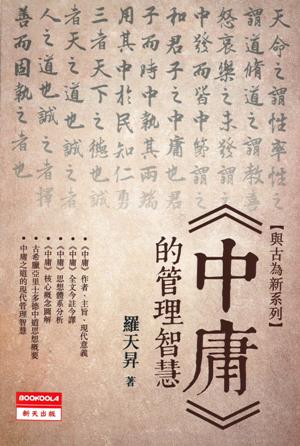 天命之謂性率性之
謂道修道之謂教喜
怒哀樂之未發謂之
中發而皆中節謂之
和君子之中庸也君
子而時中執其兩端
用其中於民知仁勇
三者天下之德也誠
者天之道也誠之者
人之道也誠之者擇
善而固執之者也
【與古為新系列】
《中庸》
的管理智慧
羅天昇 著
•《中庸》作者、主旨、現代意義
•《中庸》全文今註今譯
•《中庸》思想體系分析
•《中庸》核心概念圖解
•古希臘亞里士多德中道思想概要
•中庸之道的現代管理智慧
BOOKOOLA
新天出版